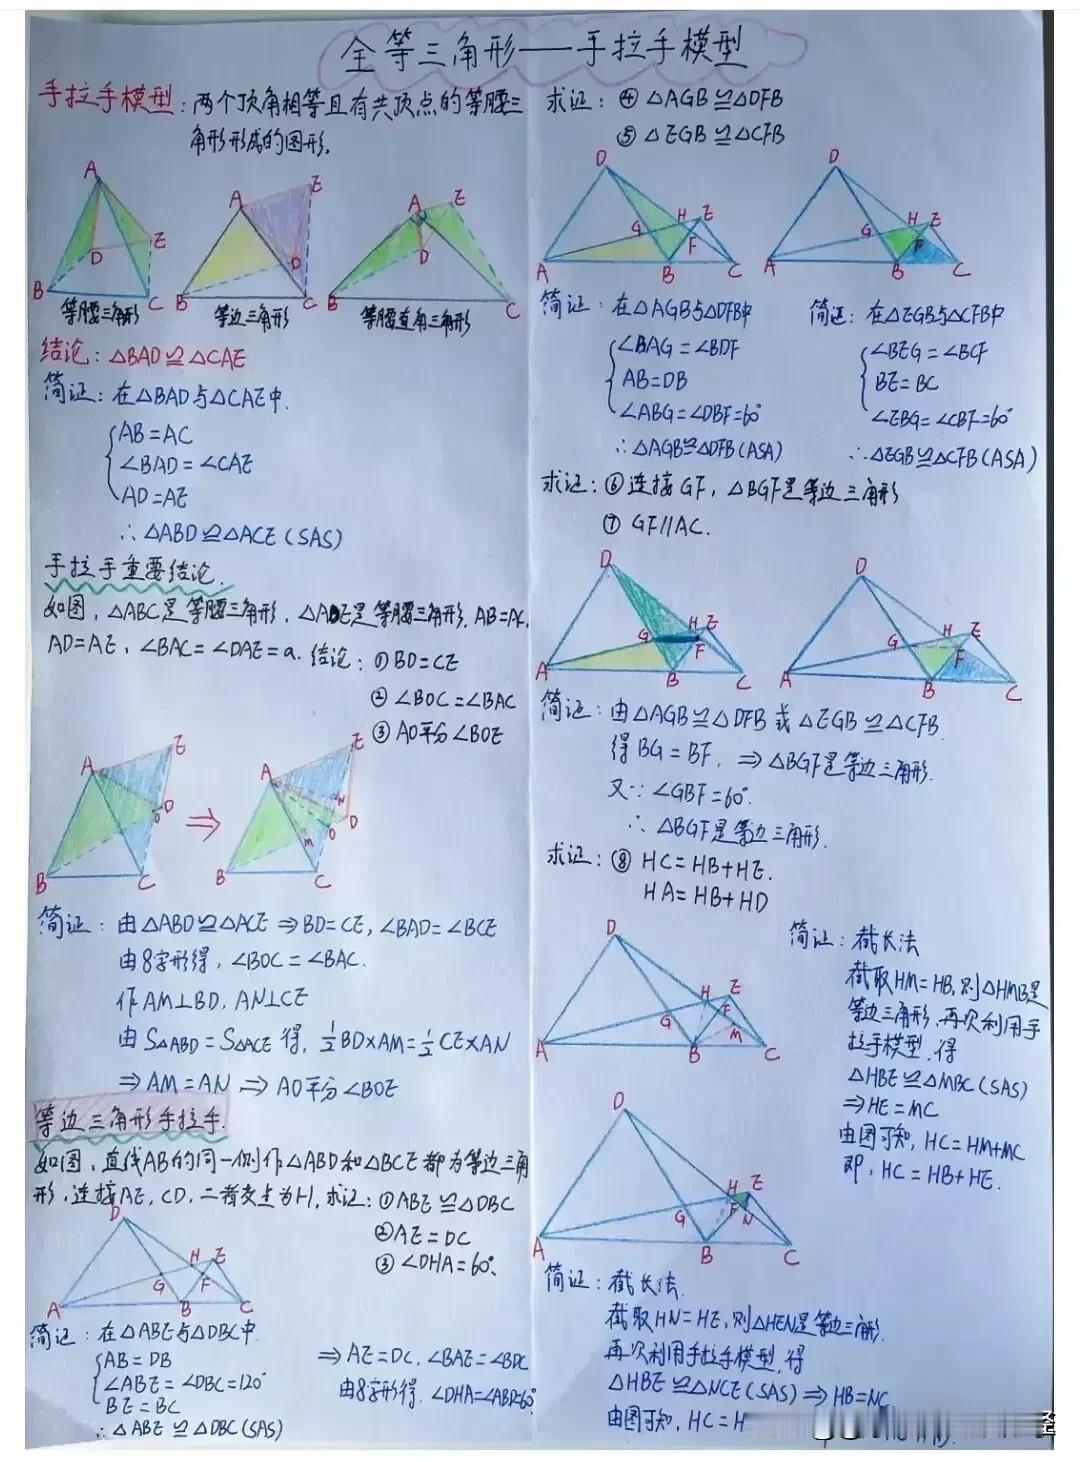 全等三角形——手拉手模型
手拉手模型：两个顶角相等且有共顶点的等腰三
角形形成的图形。
A
E
D
B
C
等腰三角形
A
E
D
B
C
等边三角形
A
E
D
B
C
等腰直角三角形
结论：△BAD≌△CAE
简证：在△BAD与△CAE中.
AB=AC
∠BAD=∠CAE
AD=AE
∴△ABD≌△ACE(SAS)
手拉手重要结论.
如图，△ABC是等腰三角形，△ADE是等腰三角形，AB=AC,
AD=AE，∠BAC=∠DAE=a. 结论：①BD=CE
②∠BOC=∠BAC
③AO平分∠BOE
A
E
D
O
B
C
A
E
N
D
O
M
B
C
简证：由△ABD≌△ACE⇒BD=CE,∠BAD=∠BCE
由8字形得，∠BOC=∠BAC.
作AM⊥BD，AN⊥CE
由S△ABD=S△ACE得，½BD×AM=½CE×AN
⇒AM=AN⇒AO平分∠BOE
等边三角形手拉手.
如图，直线AB的同一侧作△ABD和△BCE都为等边三角
形，连接AE，CD，二者交点为H，求证：①ABE≌△DBC
②AE=DC
③∠DHA=60°.
D
H
E
G
F
A
B
C
简证：在△ABE与△DBC中.
AB=DB
∠ABE=∠DBC=120°
BE=BC
∴△ABE≌△DBC(SAS)
⇒AE=DC，∠BAE=∠BDC
由8字形得，∠DHA=∠ABD=60°
求证：④△AGB≌△DFB
⑤△EGB≌△CFB
D
H
E
G
F
A
B
C
D
H
E
G
F
A
B
C
简证：在△AGB与△DFB中
∠BAG=∠BDF
AB=DB
∠ABG=∠DBF=60°
∴△AGB≌△DFB(ASA)
简证：在△EGB与△CFB中
∠BEG=∠BCF
BE=BC
∠EBG=∠CBF=60°
∴△EGB≌△CFB(ASA)
求证：⑥连接GF，△BGF是等边三角形
⑦GF//AC.
D
H
E
G
F
A
B
C
D
H
E
G
F
A
B
C
简证：由△AGB≌△DFB或△EGB≌△CFB.
得BG=BF，⇒△BGF是等边三角形.
又∵∠GBF=60°.
∴△BGF是等边三角形.
求证：⑧HC=HB+HE.
HA=HB+HD
D
H
E
G
F
M
A
B
C
简证：截长法
截取HM=HB，则△HMB是
等边三角形，再次利用手
拉手模型，得
△HBE≌△MBC(SAS)
⇒HE=MC
由图可知，HC=HM+MC
即，HC=HB+HE.
D
H
E
F
N
G
A
B
C
简证：截长法.
截取HN=HE，则△HEN是等边三角形.
再次利用手拉手模型，得
△HBE≌△NCE(SAS)⇒HB=NC
由图可知，HC=H